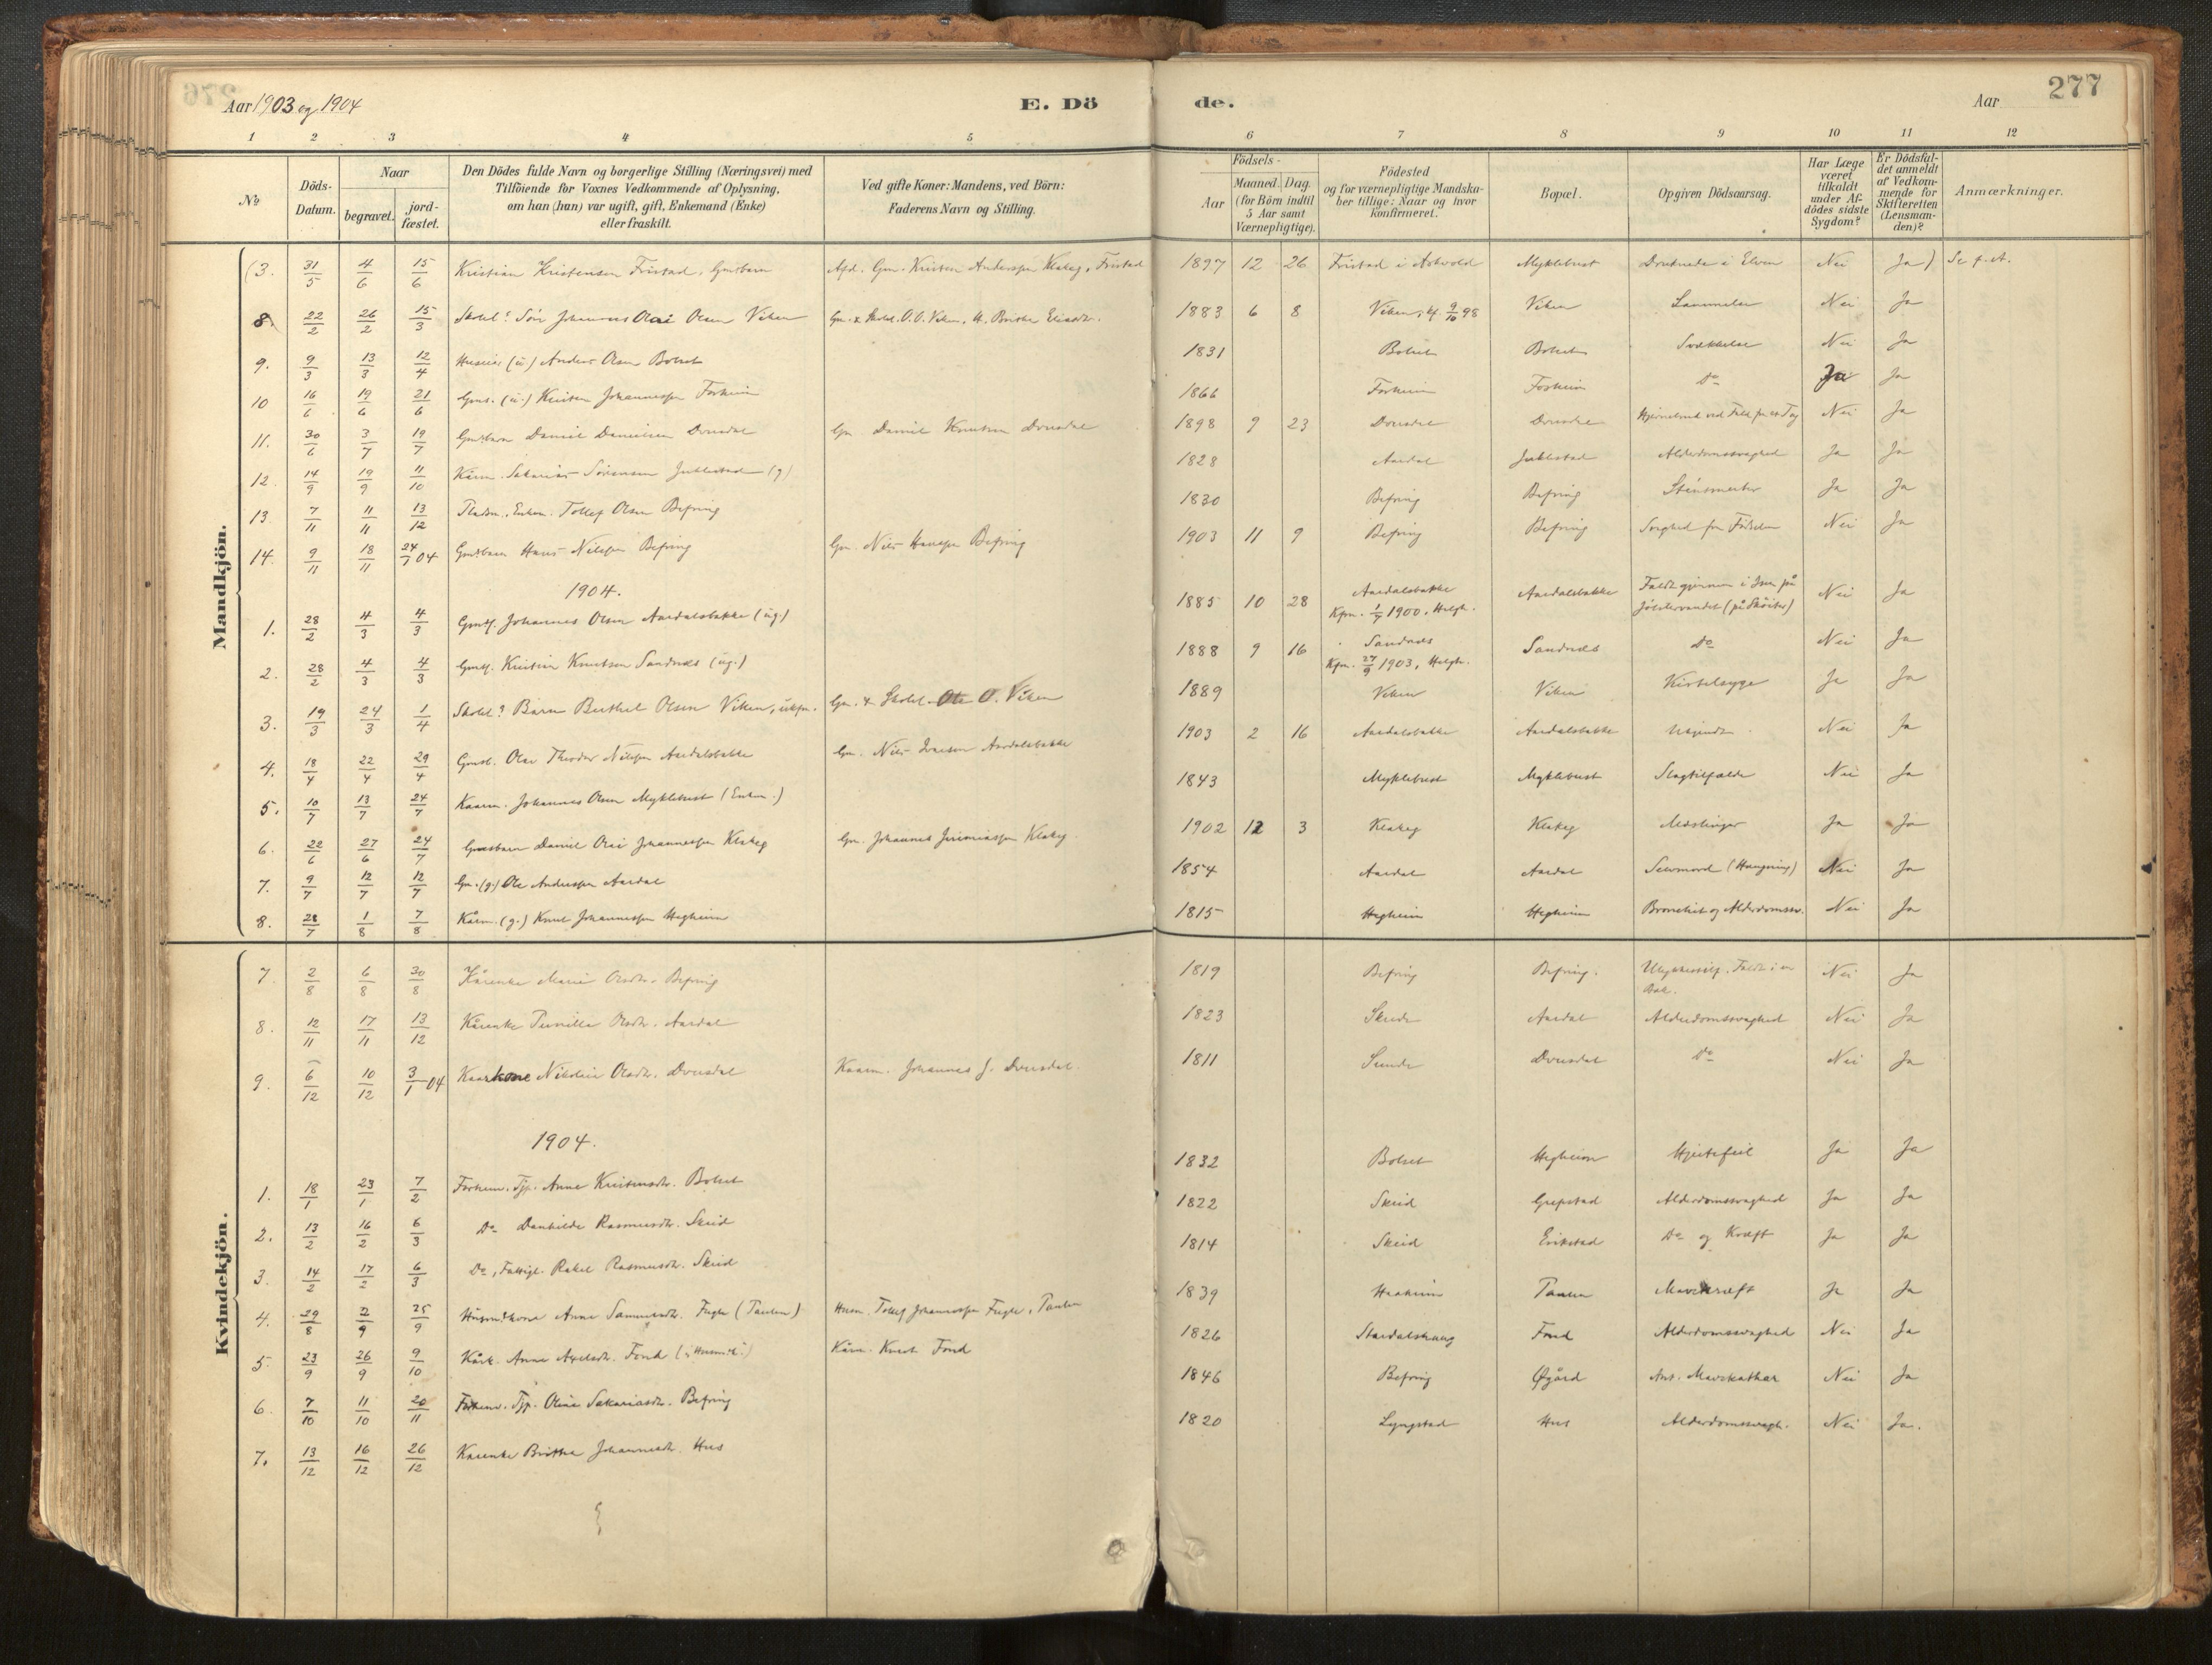 Aar 1903 og 1904 E. Dö de. Aar 277
1 2 3 4 5 6 7 8 9 10 11 12
№ Döds-Datum. Naar begravet. jord-fæstet. Den Dödes fulde Navn og borgerlige Stilling (Næringsvei) med Tilföiende for Voxnes Vedkommende af Oplysning, om han (hun) var ugift, gift, Enkemand (Enke) eller fraskilt. Ved gifte Koner: Mandens, ved Börn: Faderens Navn og Stilling. Födsels- Aar Maaned. Dag. (for Börn indtil 5 Aar samt Værnepligtige). Födested og for værnepligtige Mandskaber tillige: Naar og hvor konfirmeret. Bopæl. Opgiven Dödsaarsag. Har Læge været tilkaldt under Afdödes sidste Sygdom? Er Dödsfaldet anmeldt af Vedkommende for Skifteretten (Lensmanden)? Anmærkninger.
Mandkjön.
(3. 31/5 4/6 15/6 Kristian Kristensen Fristad, Gmdsbarn Afd. Gm. Kristen Anderssen Klakeg, Fristad 1897 12 26 Fristad i Askvold Myklebust Druknede i Elven Nei Ja) Se f. A.
8. 22/2 26/2 15/3 Skolel. Søn Johannes Olai Olsen Viken Gm. & Skolel. O. O. Viken, H. Brithe Eliasdr. 1883 6 8 Viken, kf. 9/10 98 Viken Lammelse Nei Ja
9. 9/3 13/3 12/4 (u) Anders Olsen Bolset 1831 Bolset Bolset Svækkelse Nei Ja
10 16/6 19/6 21/6 Gmds. (u) Kristen Johannessen Forheim 1866 Forheim Forheim Do Ja Ja
11. 30/6 3/7 19/7 Gmdsbarn Daniel Danielsen Dvusdal Gm. Daniel Knutsen Dvusdal 1898 9 23 Dvusdal Dvusdal Hjernebrud ved Fald fra et Tag Nei Ja
12. 14/9 19/9 11/10 Kårm. Sakarias Sørensen Juklestad (g) 1828 Aardal Juklestad Alderdomssvaghed Ja Ja
13. 7/11 11/11 13/12 Pladsm., Enkem. Tollef Olsen Befring 1830 Befring Befring Stensmerter Ja Ja
14. 9/11 18/11 24/7 04 Gmdsbarn Hans Nilssen Befring Gm. Nils Hanssen Befring 1903 11 9 Befring Befring Svaghed fra Fødselen Nei Ja
1904.
1. 28/2 4/3 4/3 Gmds. Johannes Olsen Aardalsbakke (ug.) 1885 10 28 Aardalsbakke Kfm. 1/7 1900, Helgh. Aardalsbakke Faldt gjennem i Isen på Jølstervandet (på Skøiter) Nei Ja
2. 28/2 4/3 4/3 Gmds. Kristian Knutsen Sandnæs (ug.) 1888 9 16 Sandnæs Kfm. 27/9 1903, Helgh. Sandnæs Do Nei Ja
3. 19/3 24/3 1/4 Skolel. Barn Berthel Olsen Viken, ukfm. Gm. & Skolel. Ole O. Viken 1889 Viken Viken Kirtelsyge Ja Ja
4. 18/4 22/4 29/4 Gmdsb. Olav Theodor Nilssen Aardalsbakke Gm. Nils Aardalsbakke 1903 2 16 Aardalsbakke Aardalsbakke Nei Ja
5. 10/7 13/7 24/7 Kaarm. Johannes Olsen Myklebust (Enkm.) 1843 Myklebust Myklebust Slagtilfælde Nei Ja
6. 22/6 27/6 24/7 Gmdsbarn Daniel Olai Johannessen Klakeg Gm. Johannes Jeremiassen Klakeg 1902 12 3 Klakeg Klakeg Mæslinger Ja Ja
7. 9/7 12/7 12/7 Gm. (g.) Ole Anderssen Aardal 1854 Aardal Aardal Selvmord (Hængning) Nei Ja
8. 28/7 1/8 7/8 Kårm. (g.) Knut Johannessen Hegheim 1815 Hegheim Hegheim Bronchit og Alderdomssv. Nei Ja
Kvindekjön.
7 2/8 6/8 30/8 Kårenke Marie Olsdtr. Befring 1819 Befring Befring. Ulykkestilf. Faldt i en Bæk. Nei Ja
8. 12/11 17/11 13/12 Kårenke Pernille Olsdtr. Aardal 1823 Skrede Aardal Alderdomssvaghed Nei Ja
9. 6/12 10/12 3/1 04 Kaarkone Nikoline Olsdtr. Dvusdal Kaarm. Johannes J. Dvusdal. 1811 Sunde Dvusdal Do Nei Ja
1904.
1. 18/1 23/1 7/2 Forhenv. Tjp. Anne Kristensdtr. Bolset 1832 Bolset Hegheim Hjertefeil Ja Ja
2. 13/2 16/2 6/3 Do Danhilde Rasmusdtr. Skeid 1822 Skeid Grepstad Alderdomssvaghed Ja Ja
3. 14/2 17/2 6/3 Do, Fattigl. Rakel Rasmusdtr. Skeid 1814 Skeid Erikstad Do og Kræft Ja Ja
4. 29/8 2/9 25/9 Husmdskone Anne Sammensdtr. Fugle (Taulen) Husm. Tollef Johannessen Fugle, Taulen 1839 Haaheim Taulen Mavekræft Ja Ja
5. 23/9 26/9 9/10 Kårk. Anne Axelsdtr. Fond Kårm. Knut Fond 1826 Stardalshaug Fond Alderdomssvaghed Nei Ja
6. 7/10 11/10 20/11 Forhenv. Tjp. Oline Sakariasdtr. Befring 1846 Befring Øgård Ant. Mavekathar Nei Ja
7. 13/12 16/12 26/12 Kårenke Brithe Johannesdtr. Hus 1820 Lyngstad Hus Alderdomssvagh. Nei Ja.